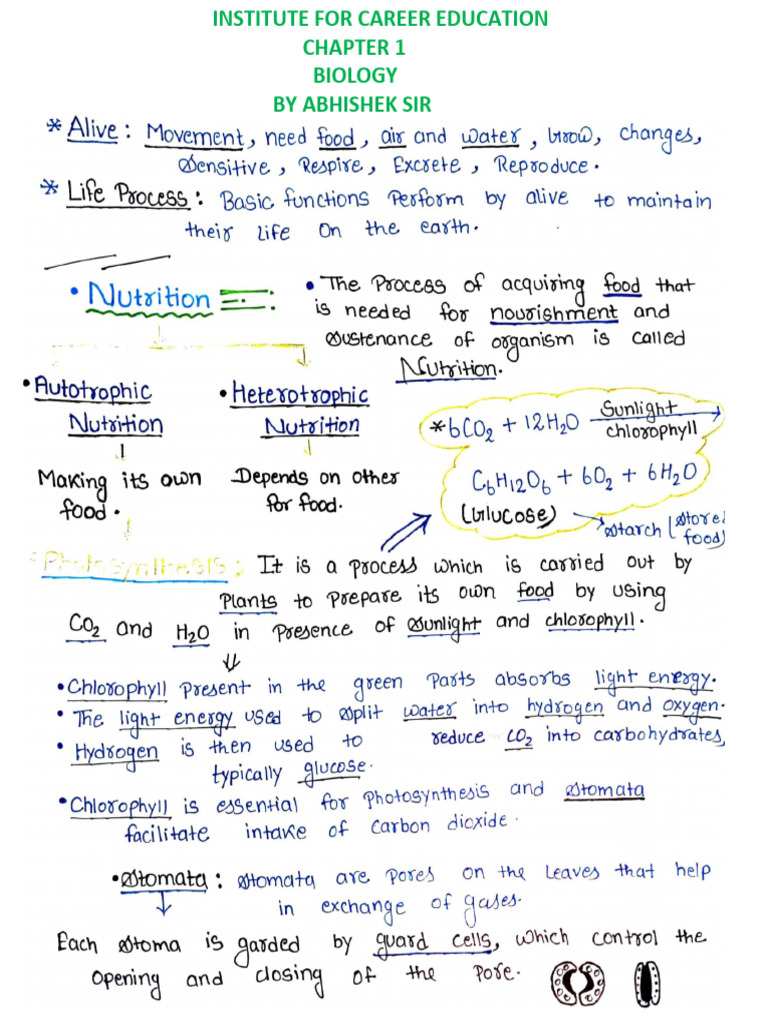 INSTITUTE FOR CAREER EDUCATION
CHAPTER 1
BIOLOGY
BY ABHISHEK SIR
* Alive : Movement, need food, air and water, Grow, changes,
Sensitive, Respire, Excrete, Reproduce.
* Life Process : Basic functions Perform by alive to maintain
their life on the earth.
• Nutrition
• The Process of acquiring food that
is needed for nourishment and
sustenance of organism is called
Nutrition.
• Autotrophic
Nutrition
Making its own
food.
• Heterotrophic
Nutrition
Depends on other
for food.
* 6CO₂ + 12H₂O Sunlight →
chlorophyll
C₆H₁₂O₆ + 6O₂ + 6H₂O
(Glucose) → Starch (Store
food)
• Photosynthesis : It is a process which is carried out by
Plants to prepare its own food by using
CO₂ and H₂O in presence of sunlight and chlorophyll.
• Chlorophyll present in the green Parts absorbs light energy.
• The light energy used to split water into hydrogen and oxygen.
• Hydrogen is then used to reduce CO₂ into carbohydrates,
typically glucose.
• Chlorophyll is essential for Photosynthesis and Stomata
facilitate intake of Carbon dioxide.
• Stomata : Stomata are Pores on the Leaves that help
in exchange of gases.
Each stoma is garded by guard cells, which control the
opening and closing of the Pore.